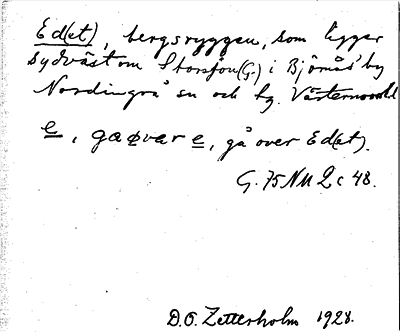 Ed(et), bergsryggen, som ligger
sydväst om Storsjön (G.) i Björnås by
Nordingrå sn och tg. Västernorrld
e, gaøvar e, gå över Ed(et).
G. 75 NU 2 c 48.
D.O. Zetterholm 1928.